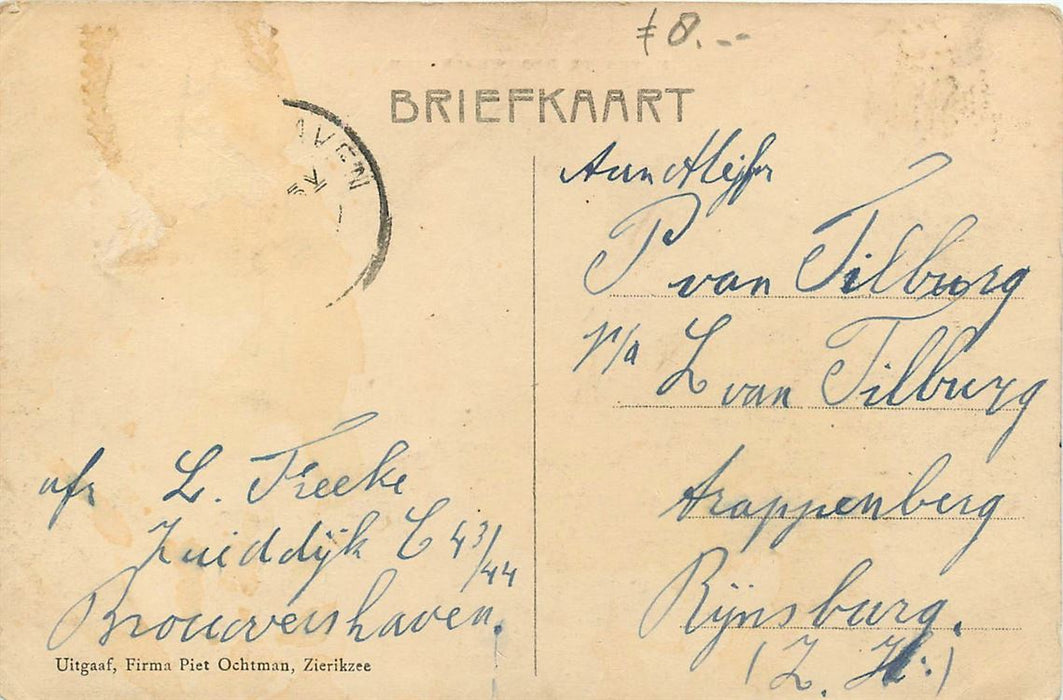 € 8.--
BRIEFKAART
AVEN
Aan Mejfr
P van Tilburg
p/a L van Tilburg
trappenberg
Rijnsburg.
(Z. H.)
afz L. Freeke
Zuiddijk C 43/44
Brouwershaven.
Uitgaaf, Firma Piet Ochtman, Zierikzee